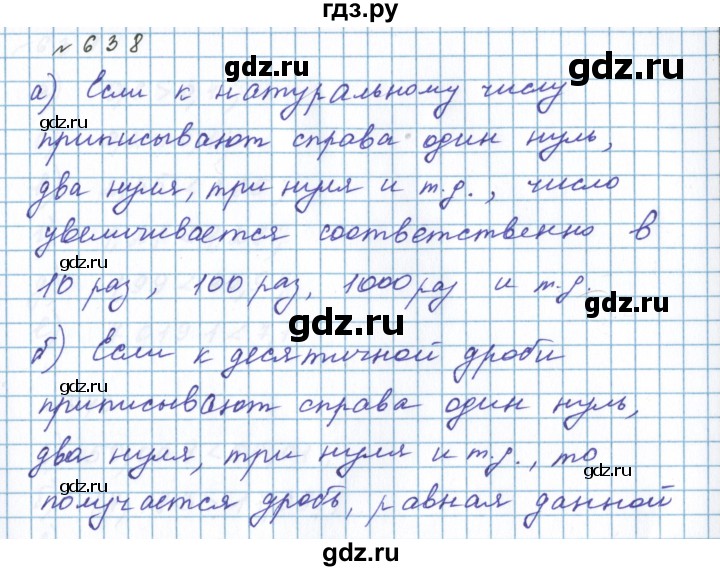 гдз.ру
№ 638
gdz.ru
gdz.ru
а) Если к натуральному числу
gdz.ru
приписывают справа один нуль,
gdz.ru
два нуля, три нуля и т.д., число
увеличивается соответственно в
gdz.ru
10 раз, 100 раз, 1000 раз и т.д.
gdz.ru
gdz.ru
б) Если к десятичной дроби
gdz.ru
приписывают справа один нуль,
gdz.ru
два нуля, три нуля и т.д., то
gdz.ru
получается дробь, равная данной
gdz.ru
gdz.ru